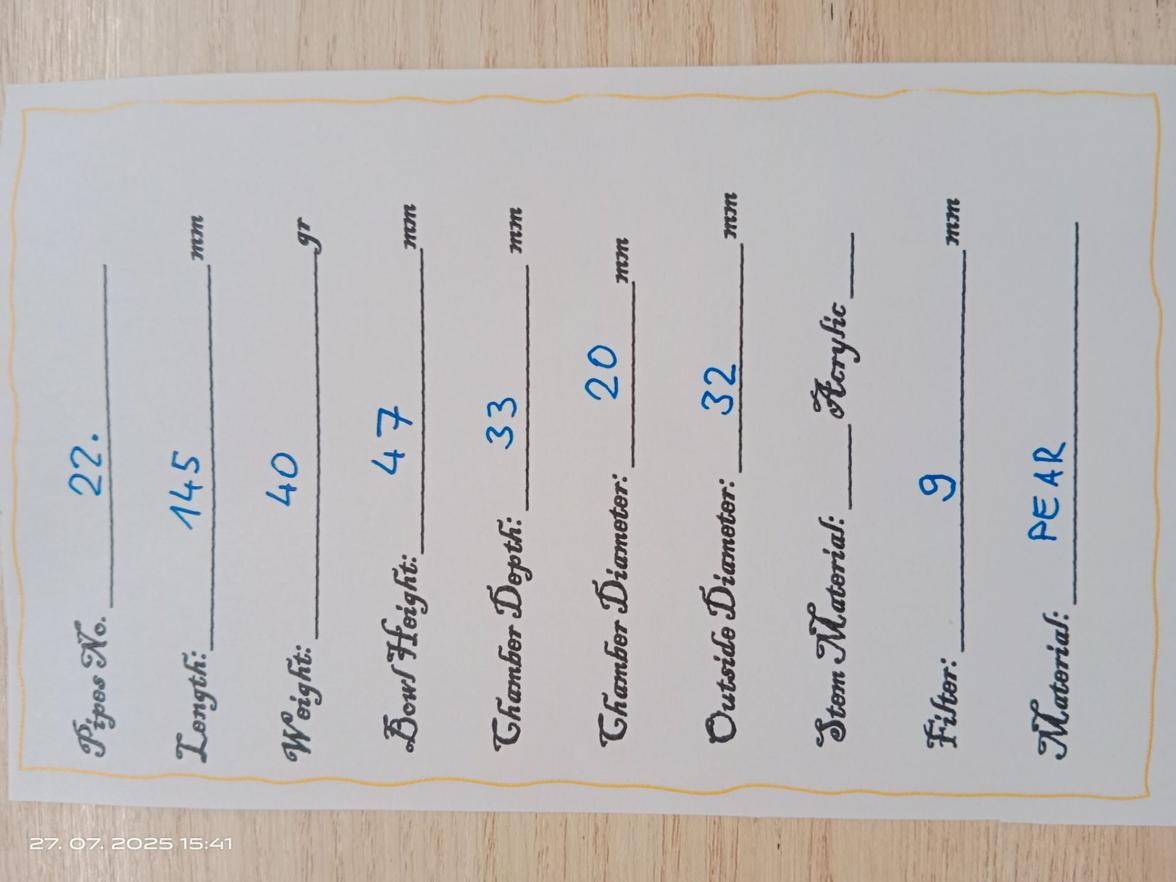 Pipes No. 22.
Length: 145 mm
Weight: 40 gr
Bowl Height: 47 mm
Chamber Depth: 33 mm
Chamber Diameter: 20 mm
Outside Diameter: 32 mm
Stem Material: Acrylic
Filter: 9 mm
Material: PEAR
27. 07. 2025 15:41